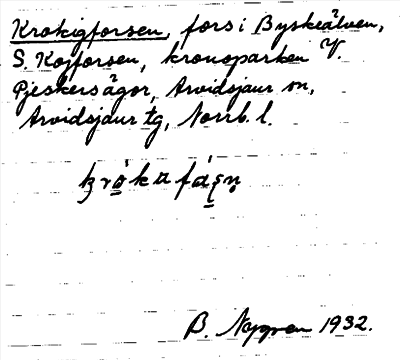 Krokigforsen, fors i Byskeälven,
S. Kojforsen, kronoparken V.
Pjeskersågor, Arvidsjaur sn,
Arvidsjaur tg, Norrb. l.
B. Nygren 1932.